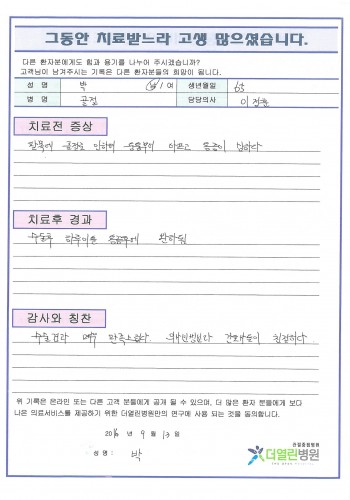 그동안 치료받느라 고생 많으셨습니다.
다른 환자분에게도 힘과 용기를 나누어 주시겠습니까?
고객님이 남겨주시는 기록은 다른 환자분들의 희망이 됩니다.
성 명 박 남 / 여 생년월일 65
병 명 골절 담당의사 이
치료전 증상
팔목에 골절로 인하여 아프고 통증이 심하다
치료후 경과
수술후 하루이틀 통증후에 완하됨
감사와 칭찬
수술결과 매우 만족스럽다. 간호사들이 친절하다
위 기록은 온라인 또는 다른 고객 분들에게 공개 될 수 있으며, 더 많은 환자 분들에게 보다
나은 의료서비스를 제공하기 위한 더열린병원만의 연구에 사용 되는 것을 동의합니다.
2016 년 9 월 13 일
성 명 : 박
관절중점병원
더열린병원